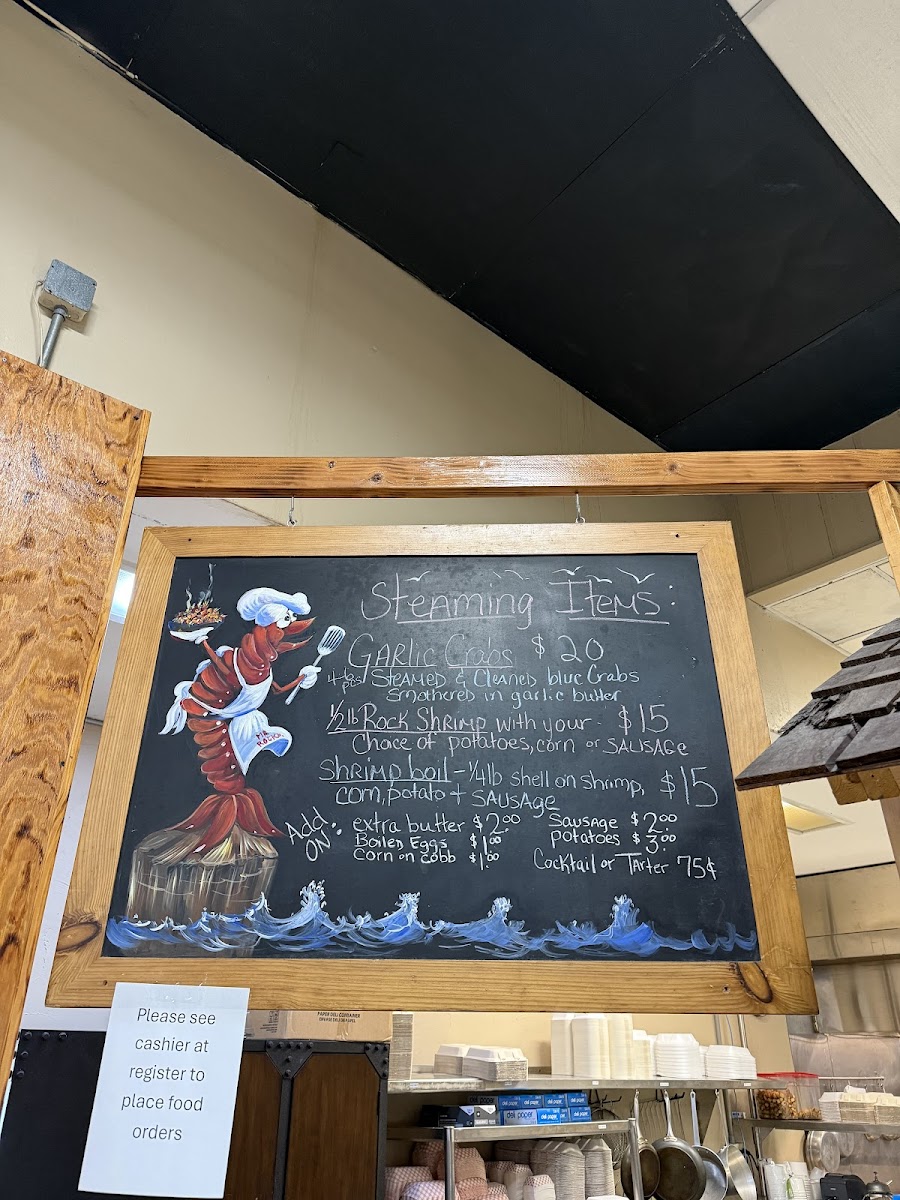 Steaming Items:
Garlic Crabs $20
4-6 pcs Steamed & Cleaned blue Crabs
smothered in garlic butter
1/2 lb Rock Shrimp with your - $15
Choice of potatoes, corn or SAUSAGe
Shrimp boil - 1/4 lb shell on shrimp, $15
corn, potato + SAUSAge
Add on:
extra butter $2.00
Boiled Eggs $1.00
Corn on cobb $1.00
Sausage $2.00
potatoes $3.00
Cocktail or Tarter 75¢
MR
ROCKY
Please see
cashier at
register to
place food
orders
PAPER DELI CONTAINER
deli paper
deli paper
deli paper